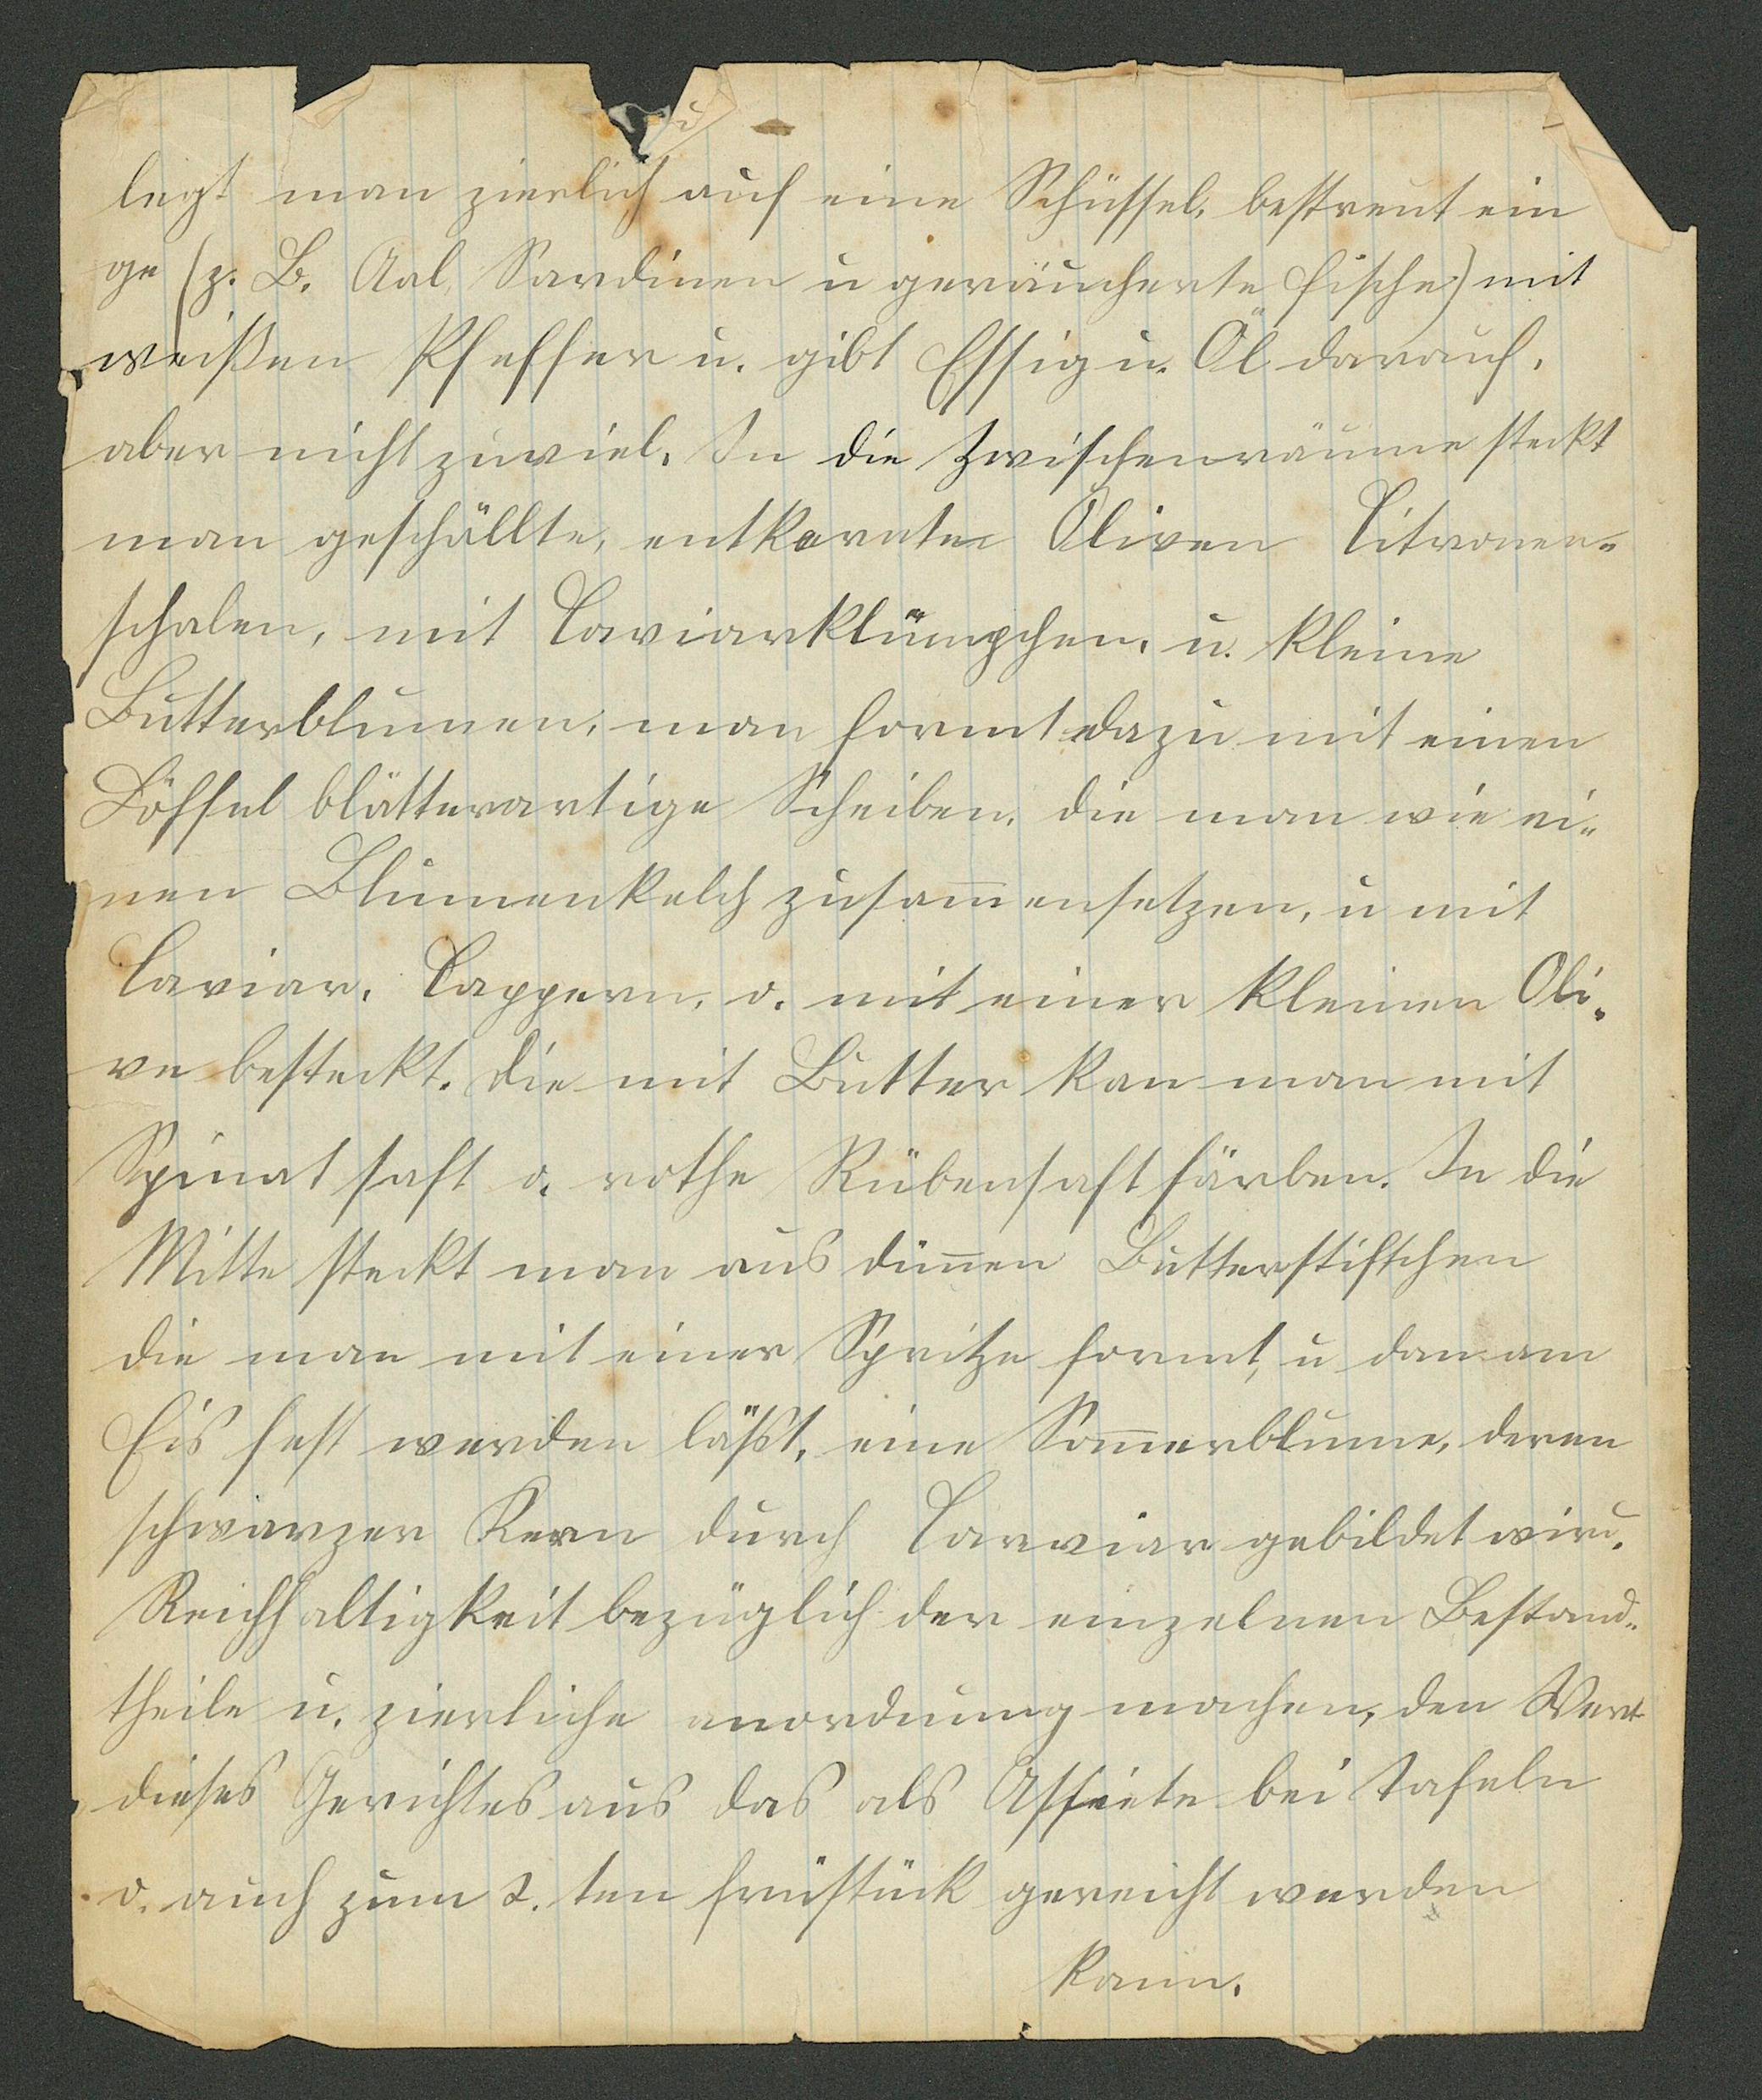 legt man zierlich auf eine Schüssel, bestreut ein
ge (z. B. Aal, Sardinen u geräucherte Fische) mit
weißen Pfeffer u. gibt Essig u. Öl darauf,
aber nicht zuviel. In die Zwischenräume steckt
man geschällte, entkernte Oliven Citronen-
schalen, mit Caviarklümpchen, u. kleine
Butterblumen, man formt dazu mit einen
Löffel blätterartige Scheiben, die man wie ei-
nen Blumenkelch zusam̄ensetzen, u mit
Caviar, Cappern, o. mit einer kleinen Oli-
ve besteckt. Die mit Butter kan man mit
Spinat saft o. rothe Rübensaft färben. In die
Mitte steckt man aus dün̄en Butterstiftchen
die man mit einer Spritze formt, u dan am
Eis fest werden läßt, eine Som̄erblume, deren
schwarzer Kern durch Carviar gebildet wird.
Reichhaltigkeit bezüglich der einzelnen Bestand-
theile u. zierliche anordnung machen, den Wert
dieses Gerichtes aus das als Assiete bei Tafeln
o. auch zum 2. ten Früstück gereicht werden
kann.